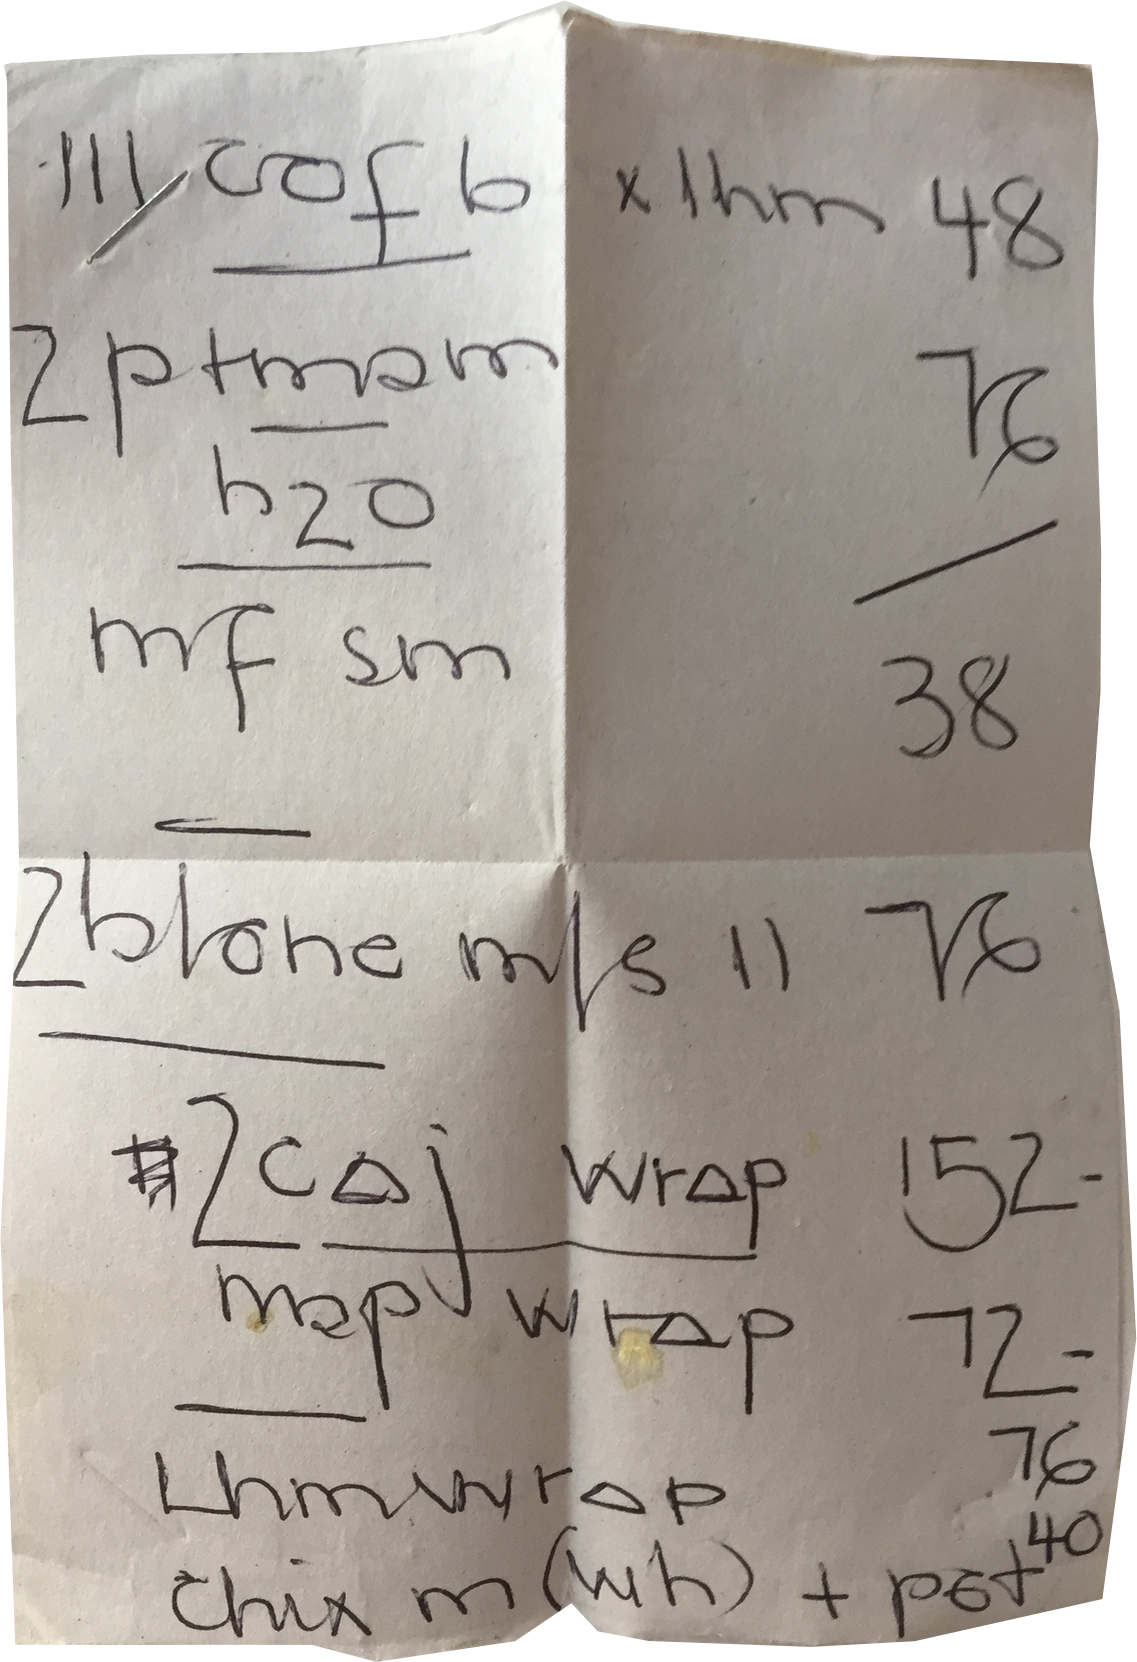 111/ cof b x 1hm 48
2 ptmpm 76
h20
mf sm 38
2 blone m/s 11 76
2 caj wrap 152-
map wrap 72-
Lhm wrap 76
Chix m (wh) + pot 40